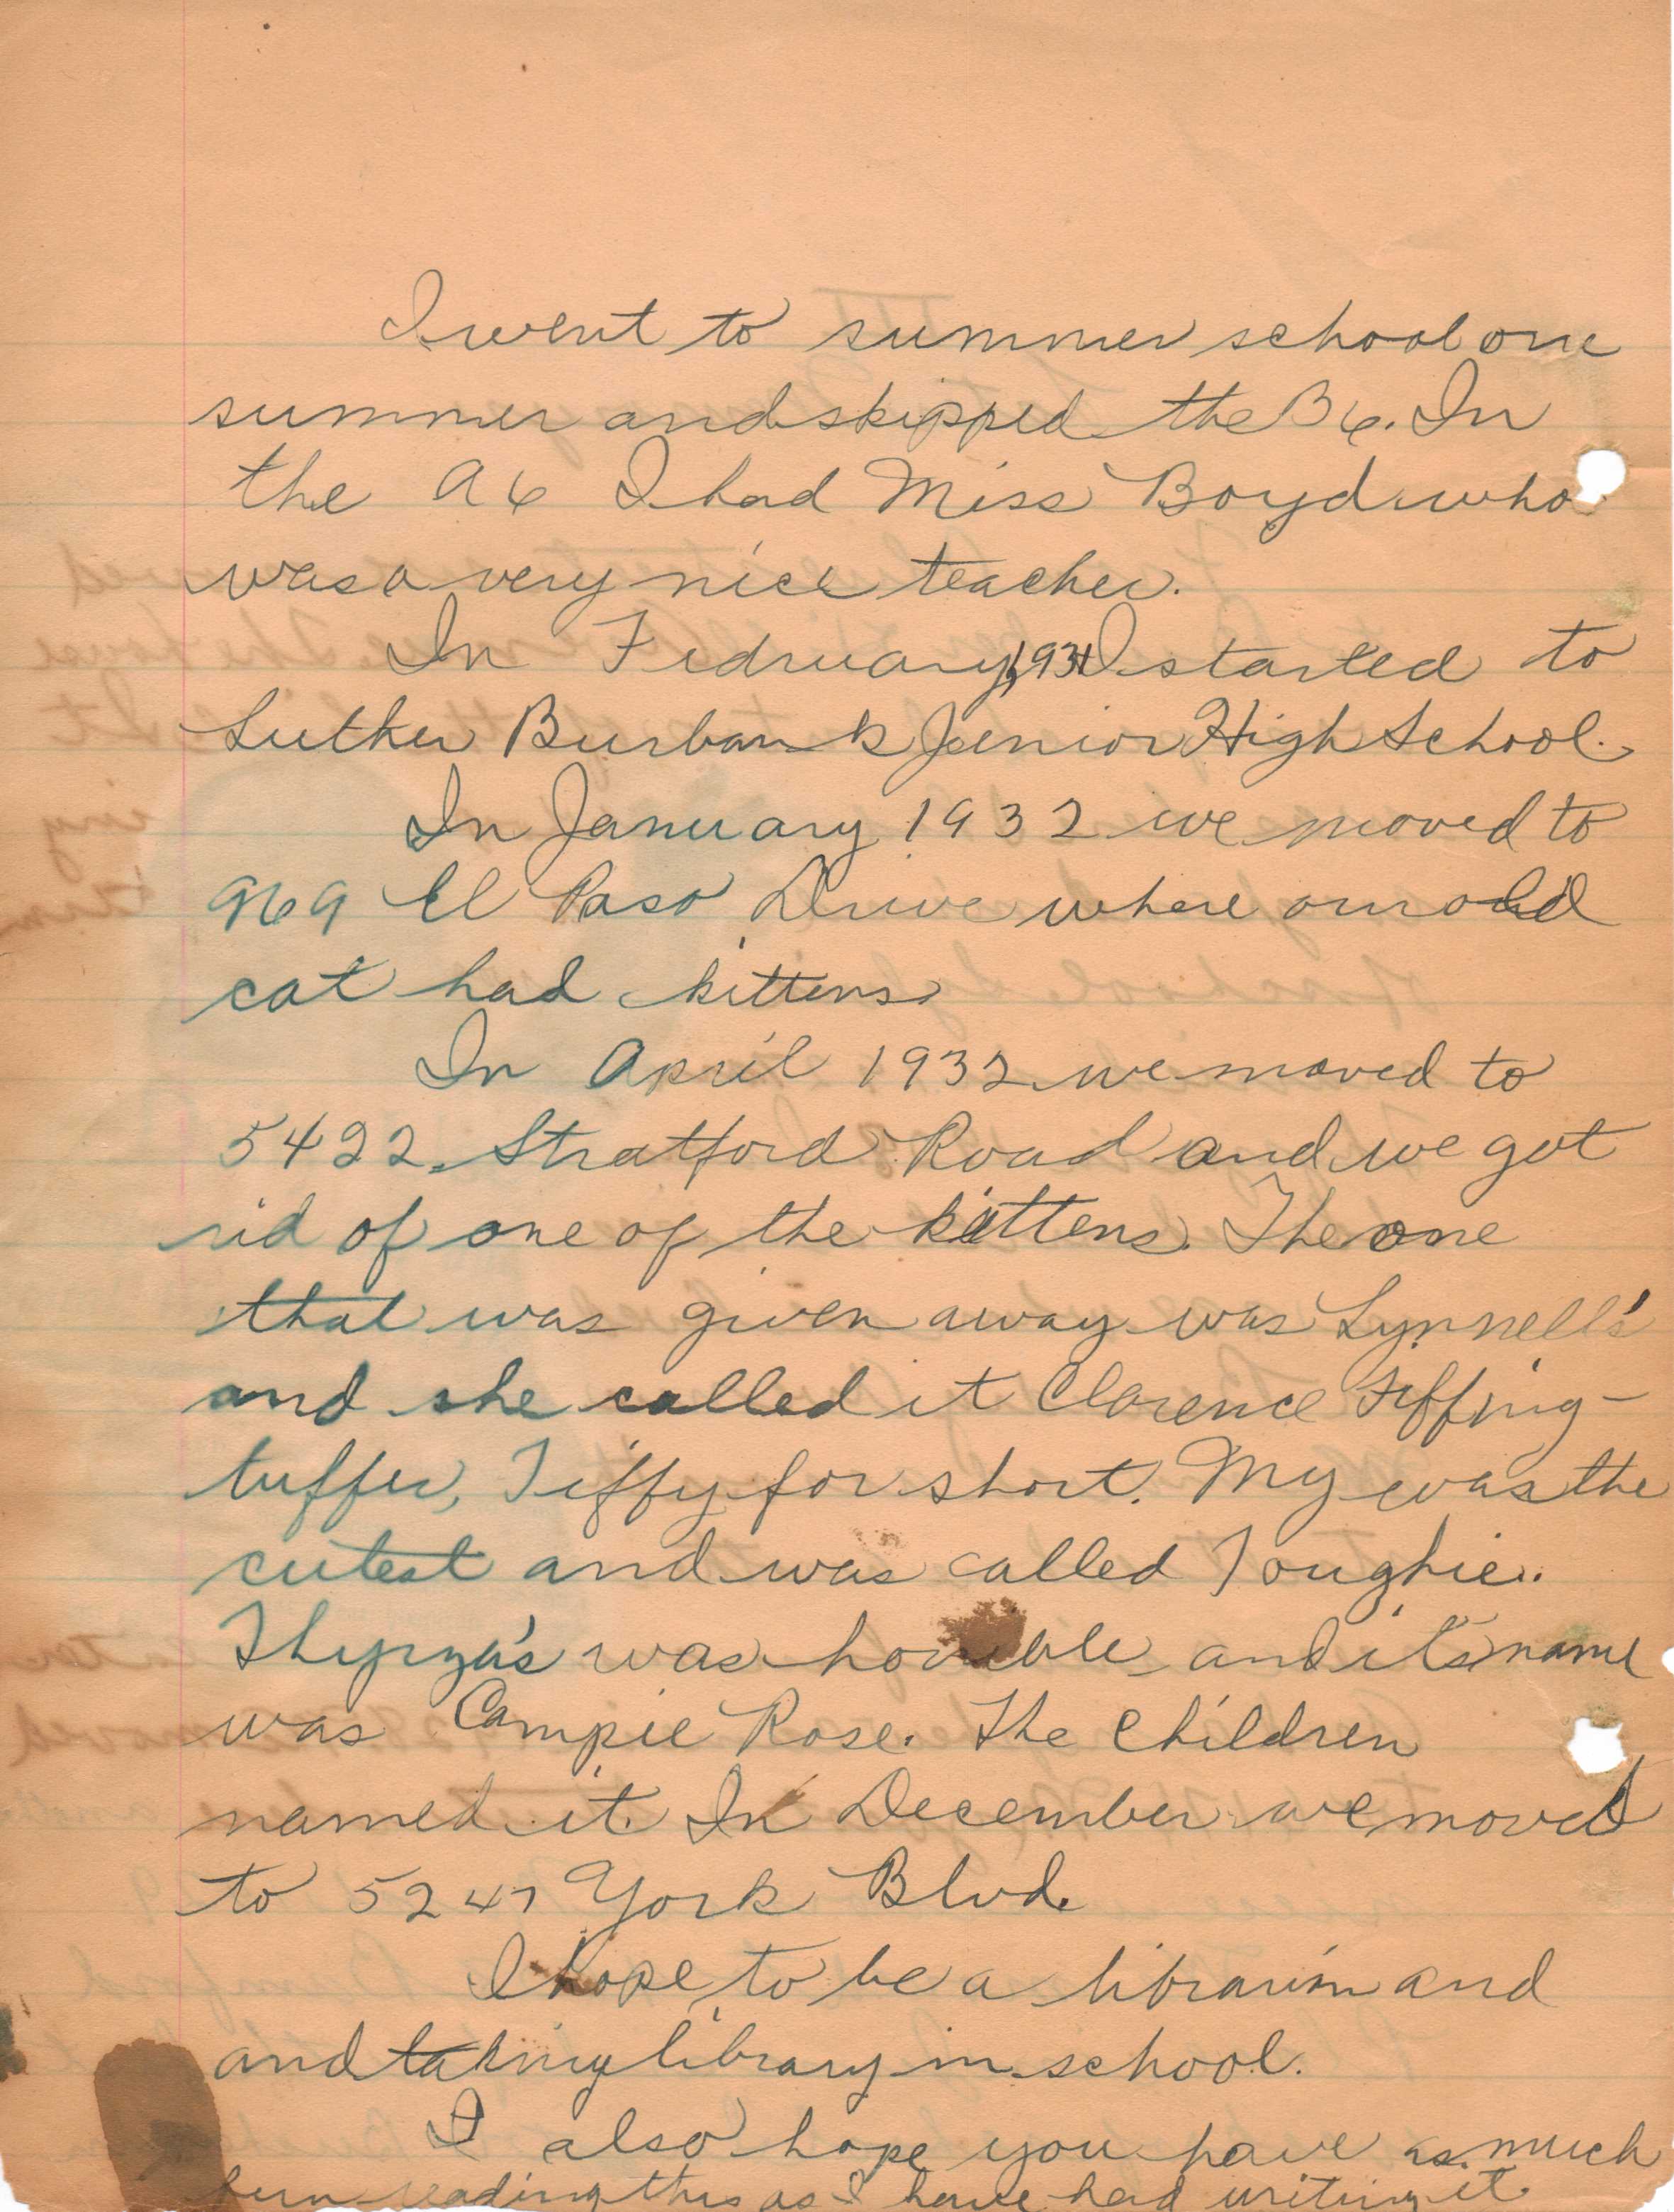 I went to summer school one
summer and skipped the B6. In
the A6 I had Miss Boyd who
was a very nice teacher.
In Fedruary, 1931 I started to
Luther Burbank Junior High School.
In January 1932 we moved to
969 El Paso Drive where our old
cat had kittens.
In April 1932 we moved to
5422 Stratford Road and we got
rid of one of the kittens. The one
that was given away was Lynnell's
and she called it Clarence Tiffing-
tuffer, Tiffy for short. My was the
cutest and was called Toughie.
Thyrza's was horrible and it's name
was Campie Rose. The children
named it. In December we moved
to 5247 York Blvd.
I hope to be a librarian and
and taking library in school.
I also hope you have as much
fun reading this as I have had writing it.